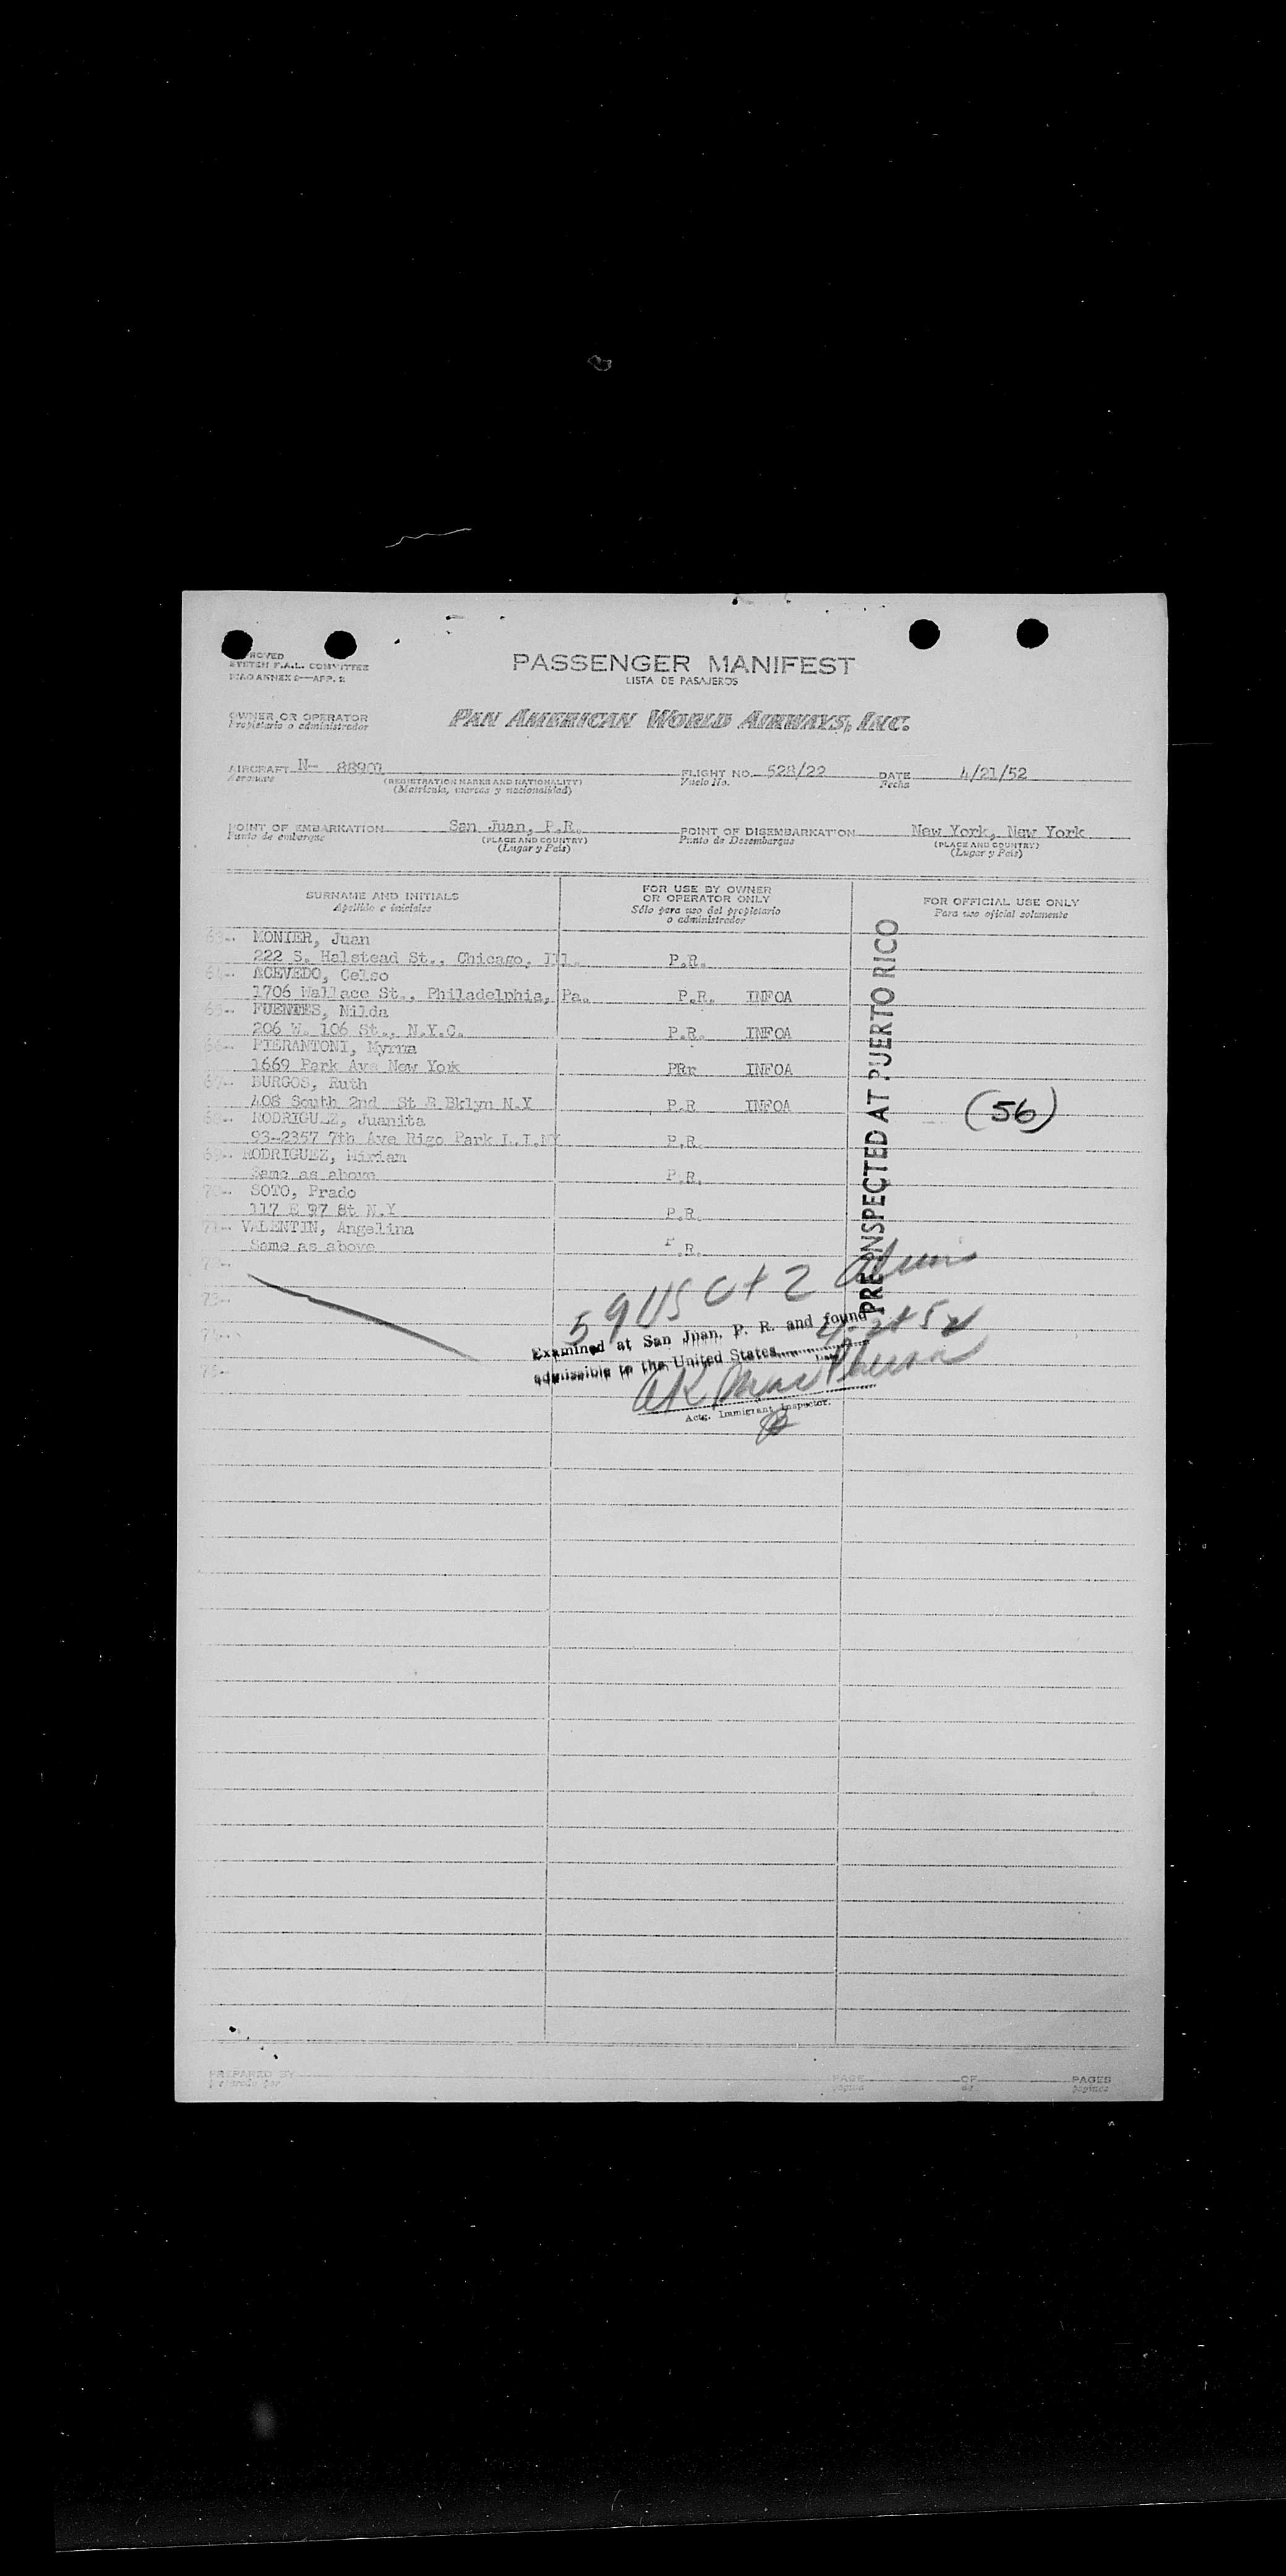 APPROVED
SYSTEM F.A.L. COMMITTEE
ICAO ANNEX 9—APP. 2
PASSENGER MANIFEST
LISTA DE PASAJEROS
OWNER OR OPERATOR
Propietario o administrador
PAN AMERICAN WORLD AIRWAYS, INC.
AIRCRAFT N- FLIGHT NO. 528/22 DATE 4/21/52
Aeronave (REGISTRATION MARKS AND NATIONALITY) Vuelo No. Fecha
(Matrícula, marcas y nacionalidad)
POINT OF EMBARKATION San Juan, P.R. POINT OF DISEMBARKATION New York, New York
Punto de embarque (PLACE AND COUNTRY) Punto de Desembarque (PLACE AND COUNTRY)
(Lugar y País) (Lugar y País)
SURNAME AND INITIALS
Apellido e iniciales
FOR USE BY OWNER
OR OPERATOR ONLY
Sólo para uso del propietario
o administrador
FOR OFFICIAL USE ONLY
Para uso oficial solamente
63-- MONIER, Juan
222 S. Halstead St., Chicago, Ill. P.R.
64-- ACEVEDO, Celso
1706 Wallace St., Philadelphia, Pa. P.R. INFOA
65-- FUENTES, Nilda
206 W. 106 St., N.Y.C. P.R. INFOA
66-- PIERANTONI, Myrna
1669 Park Ave New York PRr INFOA
67-- BURGOS, Ruth
408 South 2nd St B Bklyn N.Y P.R INFOA
68-- RODRIGUEZ, Juanita
93-2357 7th Ave Rigo Park L.I.NY P.R.
69-- RODRIGUEZ, Miriam
Same as above P.R.
70-- SOTO, Prado
117 E 97 St N.Y P.R.
71-- VALENTIN, Angelina
Same as above P.R.
72--
73--
74--
75--
PRE-INSPECTED AT PUERTO RICO
(56)
59 USC + 2
Examined at San Juan, P. R. and found
admissible to the United States
Actg. Immigrant Inspector.
PREPARED BY PAGE OF PAGES
Preparado por página de páginas